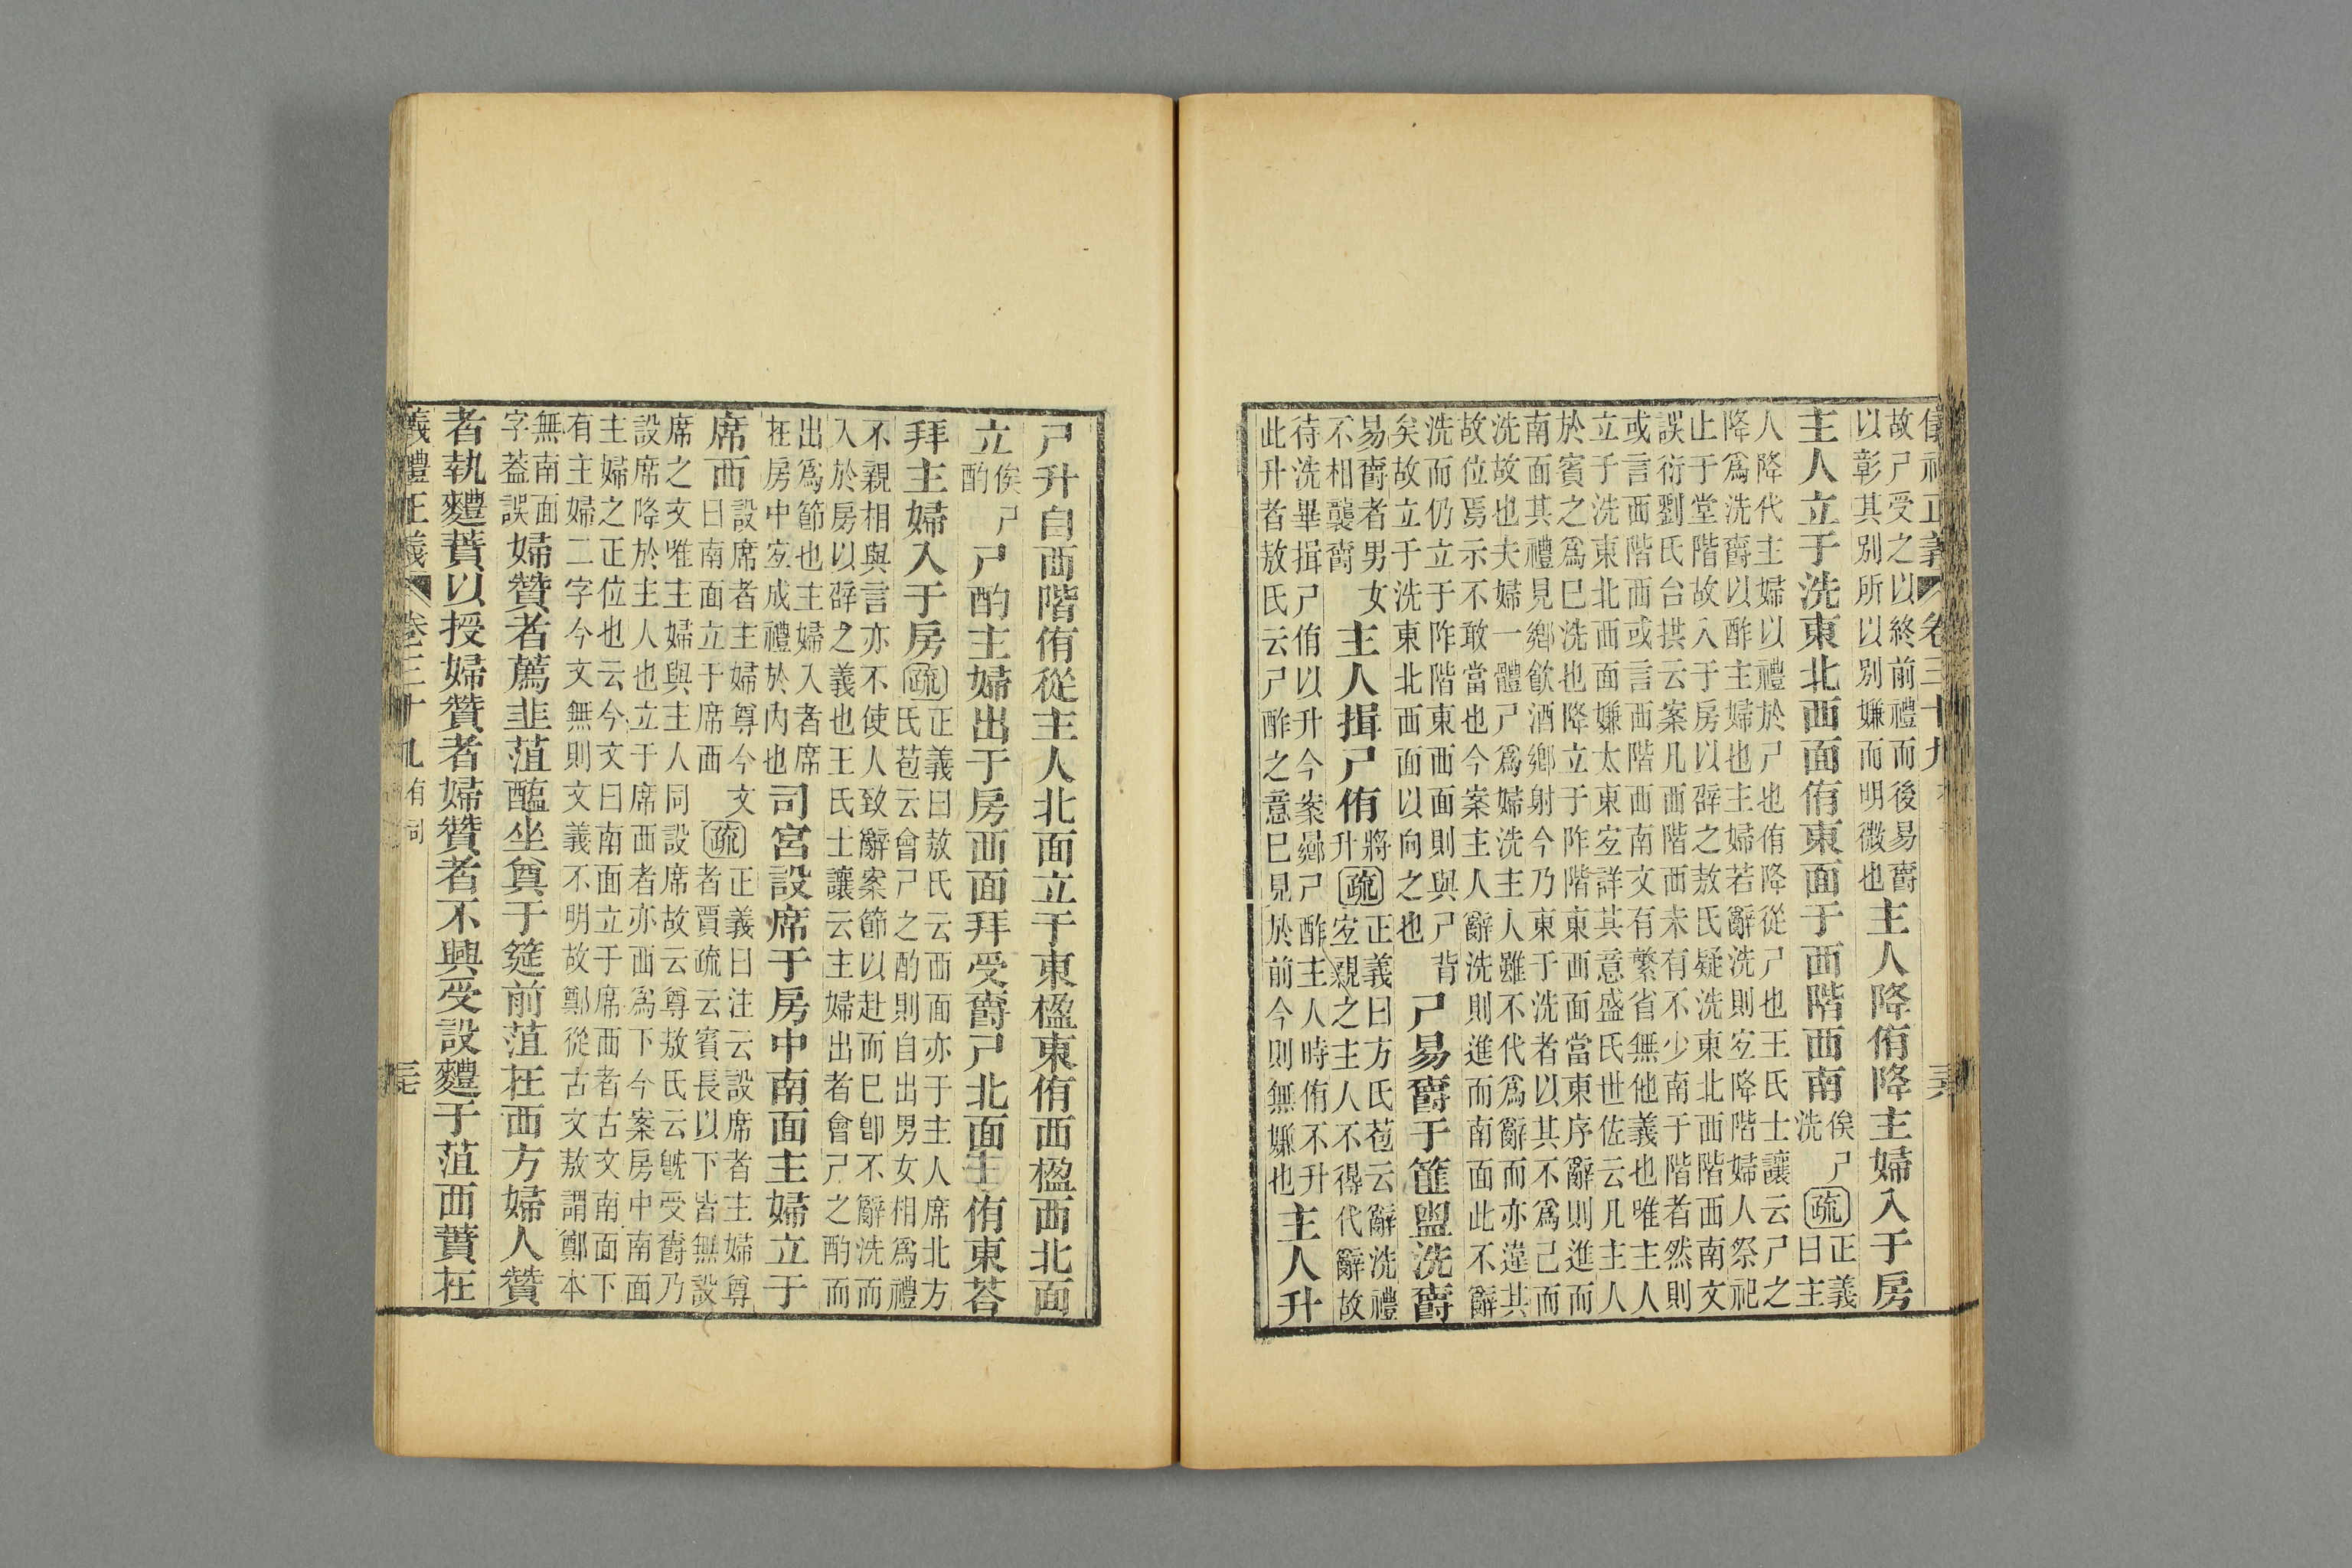 儀禮正義 卷三十九
故尸受之以終前禮而後易爵
以彰其別所以別嫌而明微也 主人降侑降主婦入于房
主人立于洗東北西面侑東面于西階西南 俟尸洗 疏 正義曰主
人降代主婦以禮於尸也侑降從尸也王氏士讓云尸之
降爲洗爵以酢主婦也主婦若辭洗則宐降階婦人祭祀
止于堂階故入于房以辟之敖氏疑洗東北西階西南文
誤衍劉氏台拱云案凡西階西未有不少南于階者然則
或言西階西或言西階西南文有繁省無他義也唯主人
立于洗東北西面嫌太東宐詳其意盛氏世佐云凡主人
於賓之爲巳洗也降立于阼階東西面當東序辭則進而
南面其禮見鄉飮酒鄉射今乃東于洗者以其不爲己而
洗故也夫婦一體尸爲婦洗主人雖不代爲辭而亦違其
故位焉示不敢當也今案主人辭洗則進而南面此不辭
洗而仍立于阼階東西面則與尸背
矣故立于洗東北西面以向之也 尸易爵于篚盥洗爵
易爵者男女
不相襲爵 主人揖尸侑 將升 疏 正義曰方氏苞云辭洗禮
宐親之主人不得代辭故
待洗畢揖尸侑以升今案曏尸酢主人時侑不升
此升者敖氏云尸酢之意巳見於前今則無嫌也 主人升
尸升自西階侑從主人北面立于東楹東侑西楹西北面
立 俟尸酌 尸酌主婦出于房西面拜受爵尸北面主侑東荅
拜主婦入于房 疏 正義曰敖氏云西面亦于主人席北方
氏苞云會尸之酌則自出男女相爲禮
不親相與言亦不使人致辭案節以赴而巳卽不辭洗而
入於房以辟之義也王氏士讓云主婦出者會尸之酌而
出爲節也主婦入者席
在房中宐成禮於内也 司宮設席于房中南面主婦立于
席西 設席者主婦尊今文
曰南面立于席西 疏 正義曰注云設席者主婦尊
者賈疏云賓長以下皆無設
席之文唯主婦與主人同設席故云尊敖氏云旣受爵乃
設席降於主人也立于席西者亦西爲下今案房中南面
主婦之正位也云今文曰南面立于席西者古文南面下
有主婦二字今文無則文義不明故鄭從古文敖謂鄭本
無南面
字葢誤 婦贊者薦韭菹醢坐奠于筵前菹在西方婦人贊
者執麷蕡以授婦贊者婦贊者不興受設麷于菹西蕡在
義禮正義 卷三十九 有司